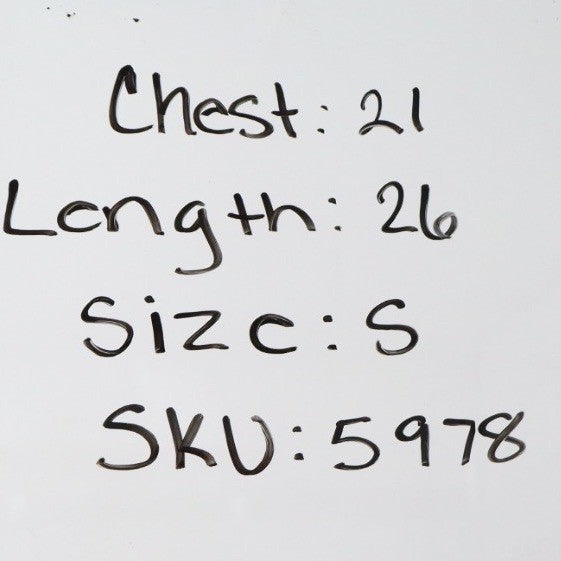 Chest: 21
Length: 26
Size: S
SKU: 5978